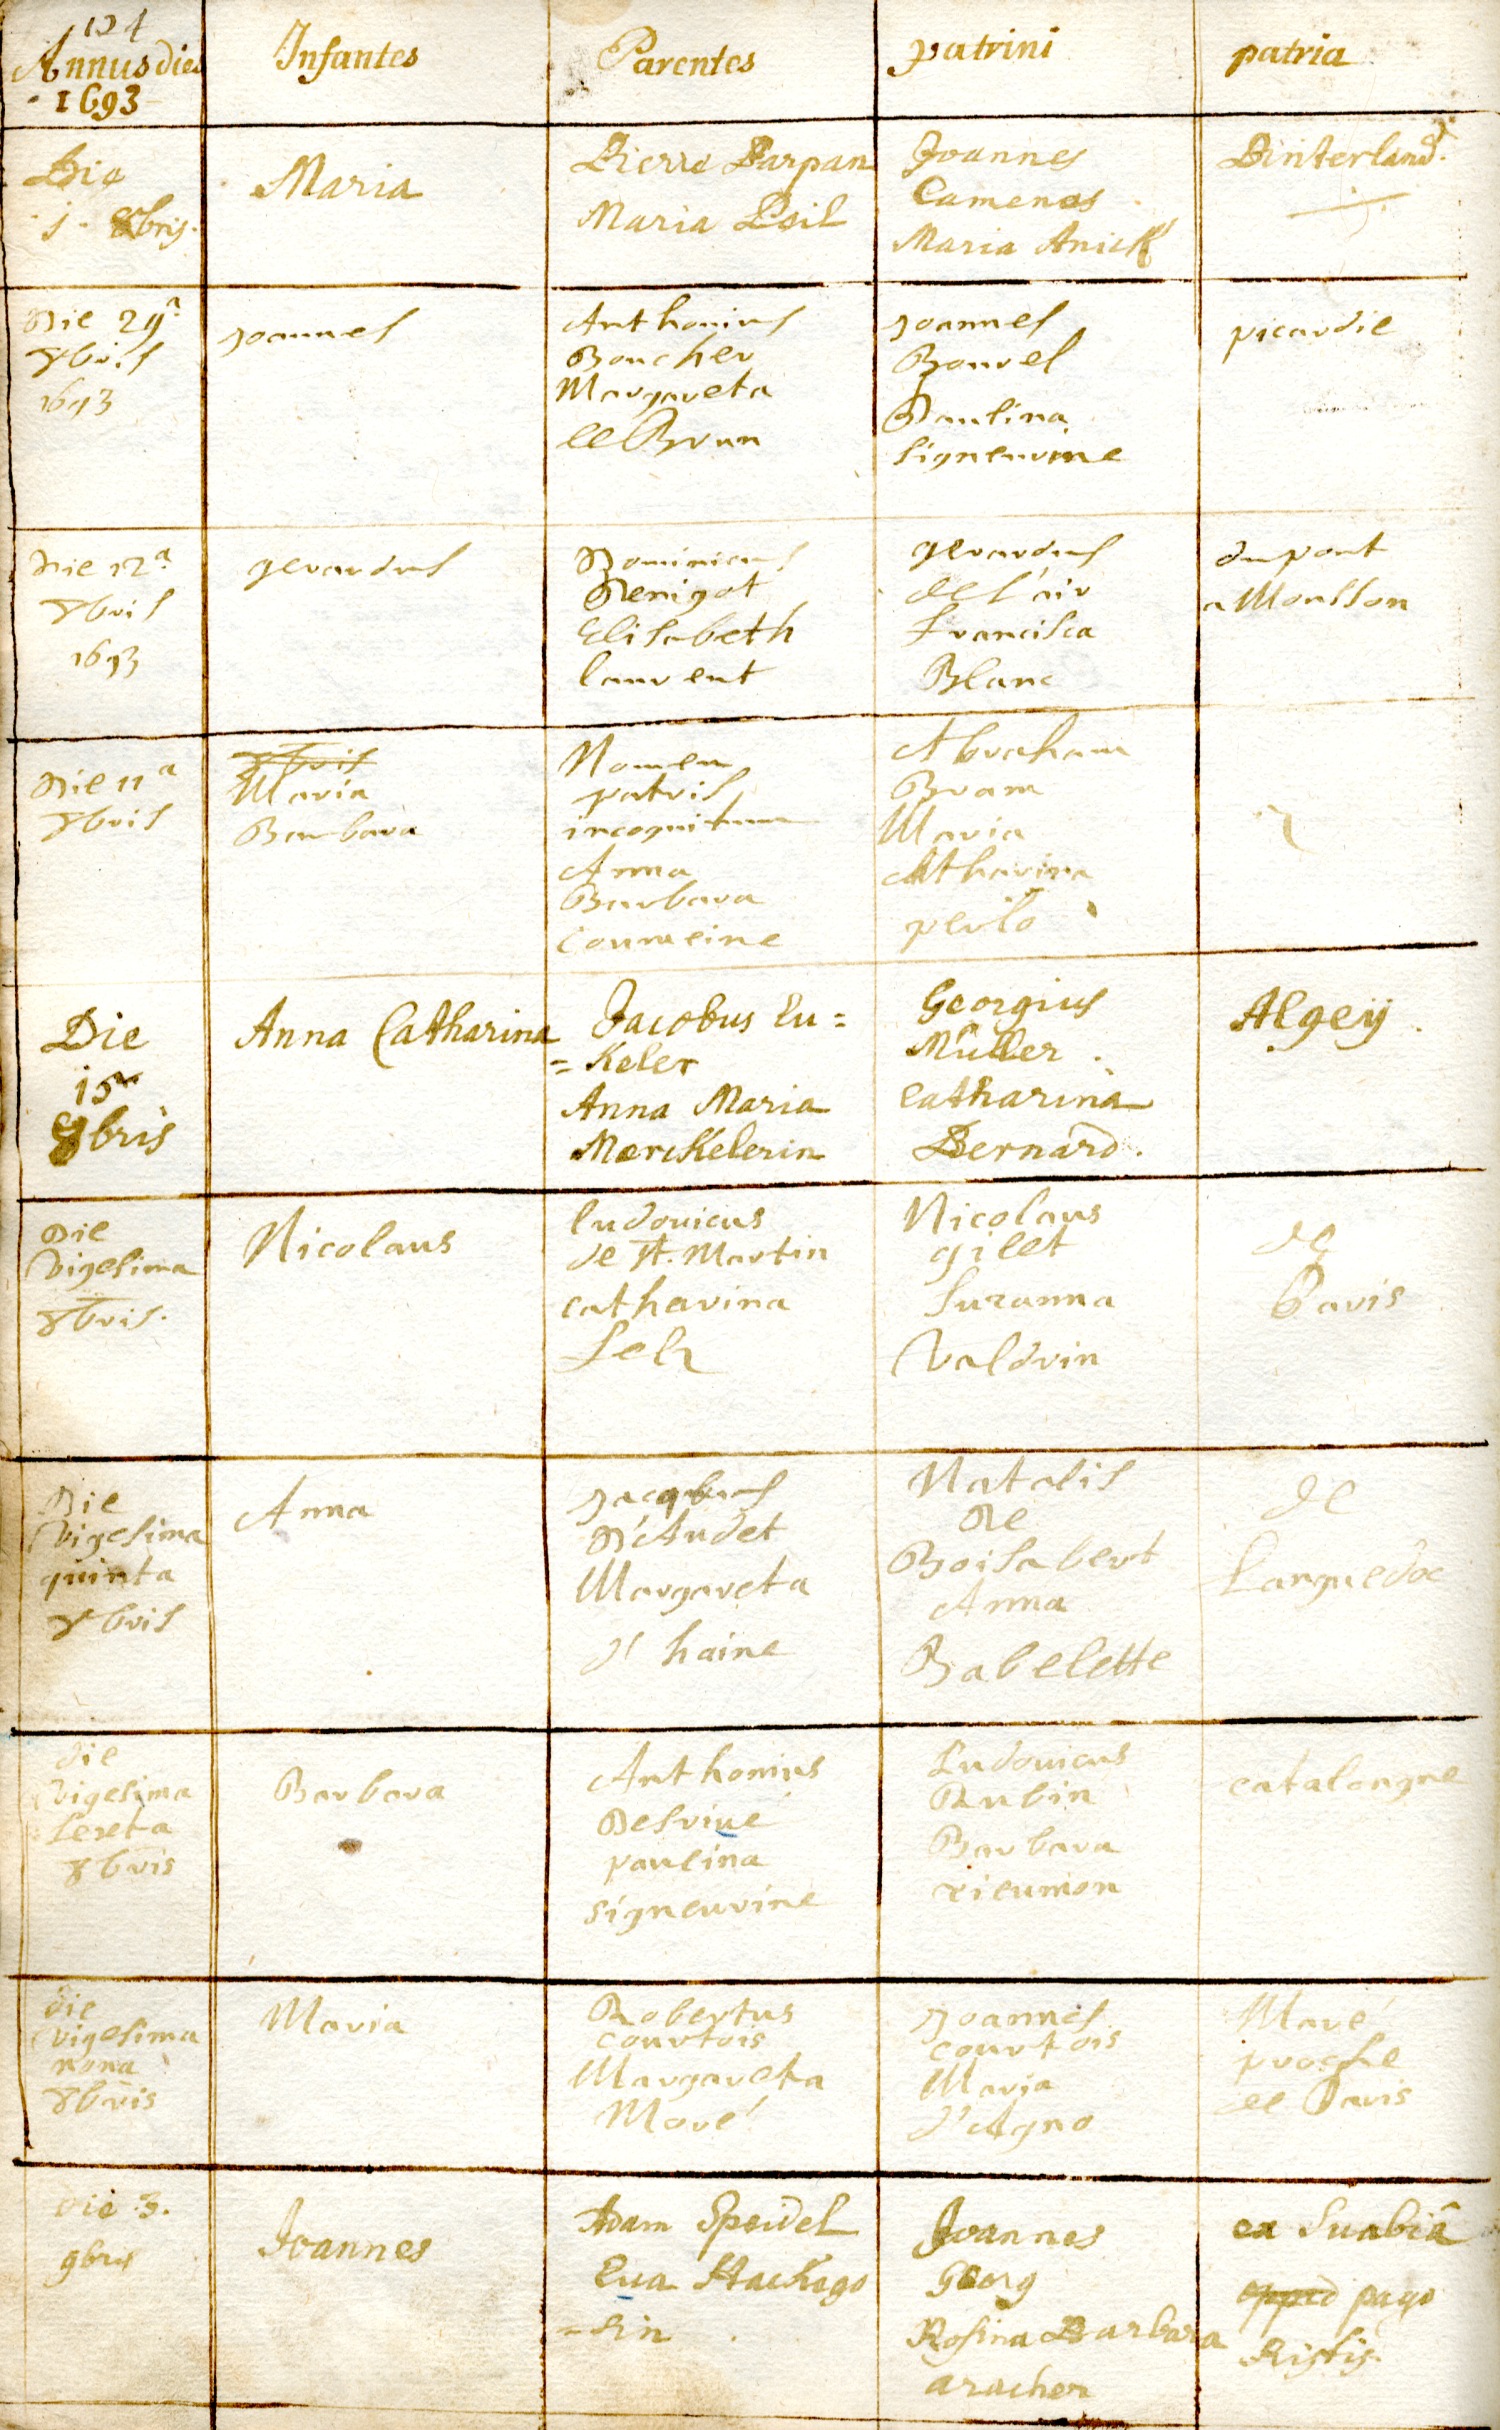 104
Annus dies
1693
Infantes
Parentes
patrini
patria
Die
1. 8bris.
Maria
Pierre Parpan
Maria Poil
Joannes
Camenos
Maria Anick
Binterland.
Die 29a
7bris
1693
Joannes
Anthonius
Boucher
Margareta
le Brun
Joannes
Bourel
Paulina
signeurine
picardie
Die 12a
8bris
1693
gerardus
Dominicus
Denigot
Elisabeth
laurent
gerardus
del'air
Francisca
Blanc
du pont
a Mousson
Die 11a
8bris
Maria
Barbara
Nomen
patris
incognitum
Anna
Barbara
Coumeine
Abraham
Bram
Maria
Catharina
perlo
Die
15a
8bris
Anna Catharina
Jacobus Eu=
=Keler
Anna Maria
MercKelerin
Georgius
Müller.
Catharina
Bernard.
Algeÿ.
Die
Vigesima
8bris.
Nicolaus
ludovicus
de st. Martin
catharina
Selz
Nicolaus
gilet
Suzanna
Valdrin
de
Paris
Die
Vigesima
quinta
8bris
Anna
Jacobus
D'Audet
Margareta
d'haine
Natalis
De
Boisabert
Anna
Babelette
de
Languedoc
die
vigesima
sexta
8bris
Barbara
Anthonius
Desriué
paulina
signeurine
Ludovicus
Rubin
Barbara
rieumon
catalongne
die
vigesima
nona
8bris
Maria
Robertus
courtois
Margareta
Moré
Joannes
courtois
Maria
d'Agno
Moré
proche
de Paris
Die 3.
9bris
Joannes
Adam Speidel
Eva Hackego
=Kin
Joannes
Georg
Rosina Barbara
aracher
ex Suabiâ
pago
Kistig.